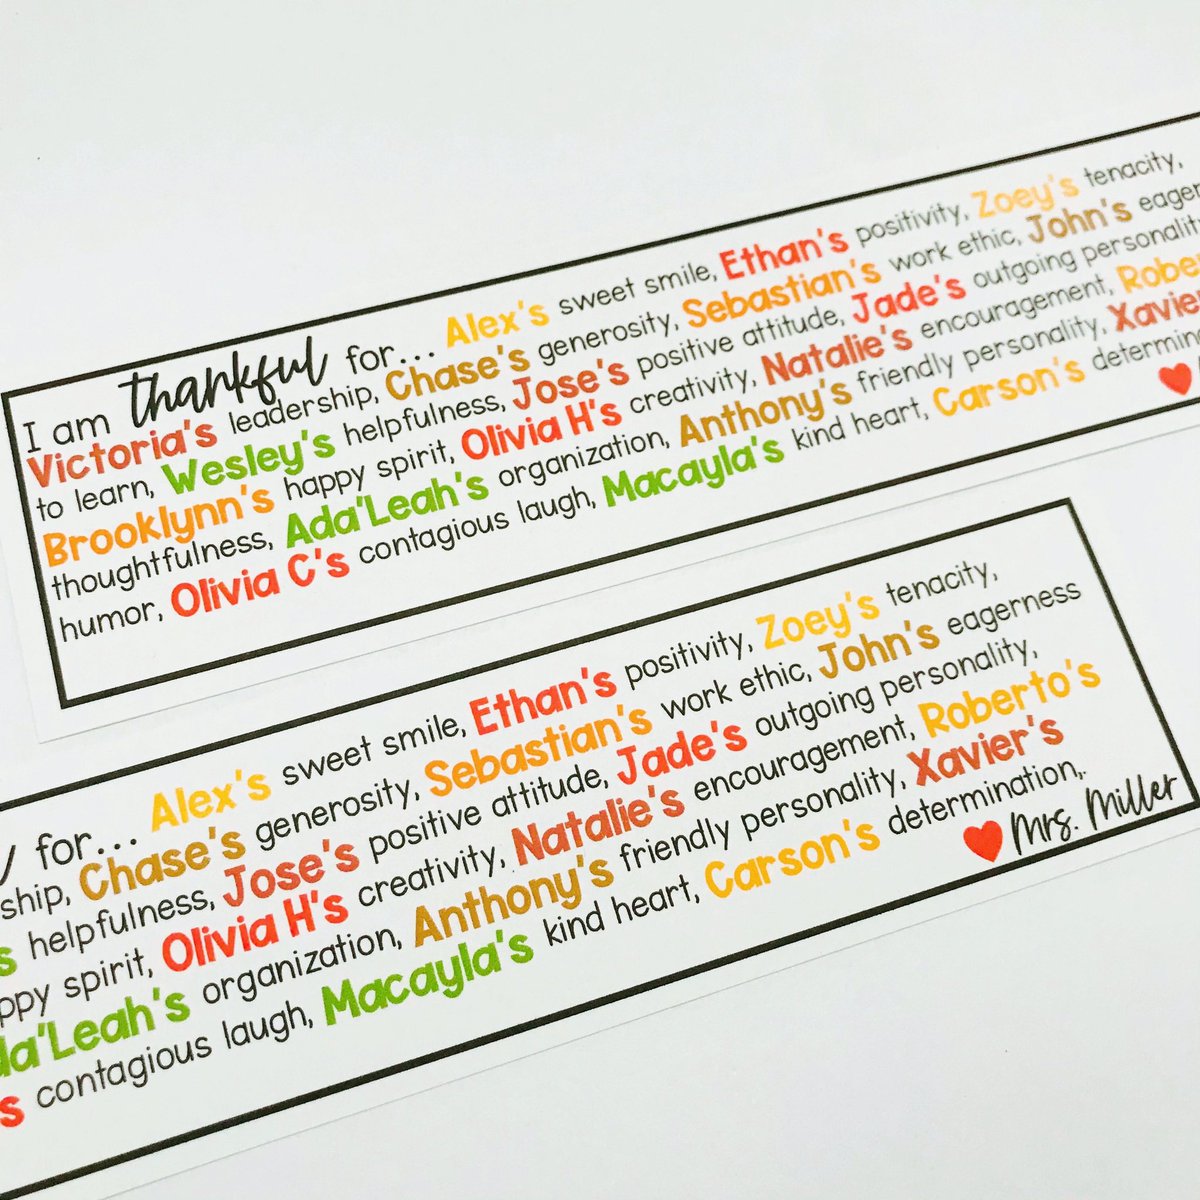 I am thankful for... Alex's sweet smile, Ethan's positivity, Zoey's tenacity,
Victoria's leadership, Chase's generosity, Sebastian's work ethic, John's eager
to learn, Wesley's helpfulness, Jose's positive attitude, Jade's outgoing personality
Brooklynn's happy spirit, Olivia H's creativity, Natalie's encouragement, Rober
thoughtfulness, Ada'Leah's organization, Anthony's friendly personality, Xavier
humor, Olivia C's contagious laugh, Macayla's kind heart, Carson's determin
for... Alex's sweet smile, Ethan's positivity, Zoey's tenacity,
ship, Chase's generosity, Sebastian's work ethic, John's eagerness
s helpfulness, Jose's positive attitude, Jade's outgoing personality,
ppy spirit, Olivia H's creativity, Natalie's encouragement, Roberto's
da'Leah's organization, Anthony's friendly personality, Xavier's
s contagious laugh, Macayla's kind heart, Carson's determination,.
Mrs. Miller